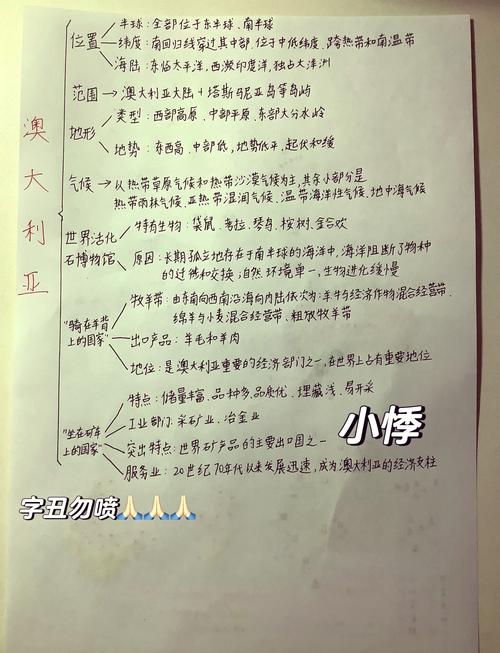 澳大利亚
位置
半球：全部位于东半球、南半球
纬度：南回归线穿过其中部，位于中低纬度、跨热带和南温带
海陆：东临太平洋，西濒印度洋，独占大洋洲
范围→澳大利亚大陆+塔斯马尼亚岛等岛屿
地形
类型：西部高原、中部平原、东部大分水岭
地势：东西高、中部低，地势低平，起伏和缓
气候→从热带草原气候和热带沙漠气候为主，其余小部分是
热带雨林气候、亚热带湿润气候、温带海洋性气候、地中海气候
世界活化
石博物馆
特有生物：袋鼠、考拉、琴鸟、桉树、金合欢
原因：长期孤立地存在于南半球的海洋中，海洋阻断了物种
的迁徙和交换；自然环境单一，生物进化缓慢
"骑在羊背
上的国家"
牧羊带：由东南向西南沿海向内陆依次为：羊牛与经济作物混合经营带、
绵羊与小麦混合经营带、粗放牧羊带
出口产品：羊毛和羊肉
地位：是澳大利亚重要的经济部门之一，在世界上占有重要地位
"坐在矿车
上的国家"
特点：储量丰富、品种多、品质优、埋藏浅、易开采
工业部门：采矿业、冶金业
突出特点：世界矿产品的主要出口国之一
服务业：20世纪70年代以来发展迅速，成为澳大利亚的经济支柱
小悸
字丑勿喷🙏🏻🙏🏻🙏🏻